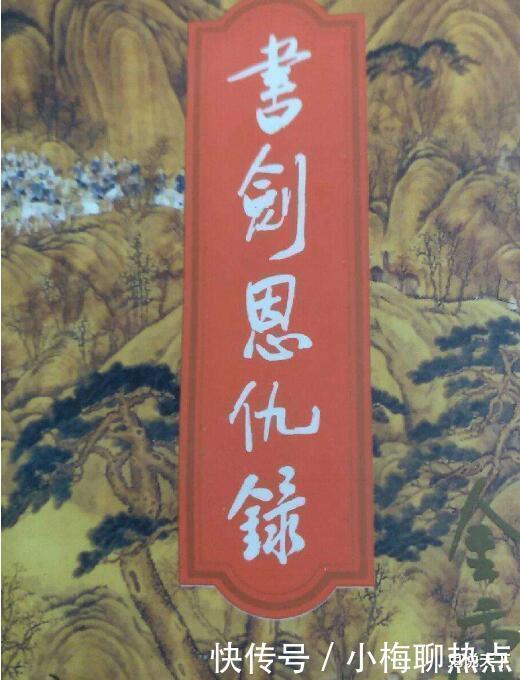 書劍恩仇錄
金庸
快传号/小梅聊热点